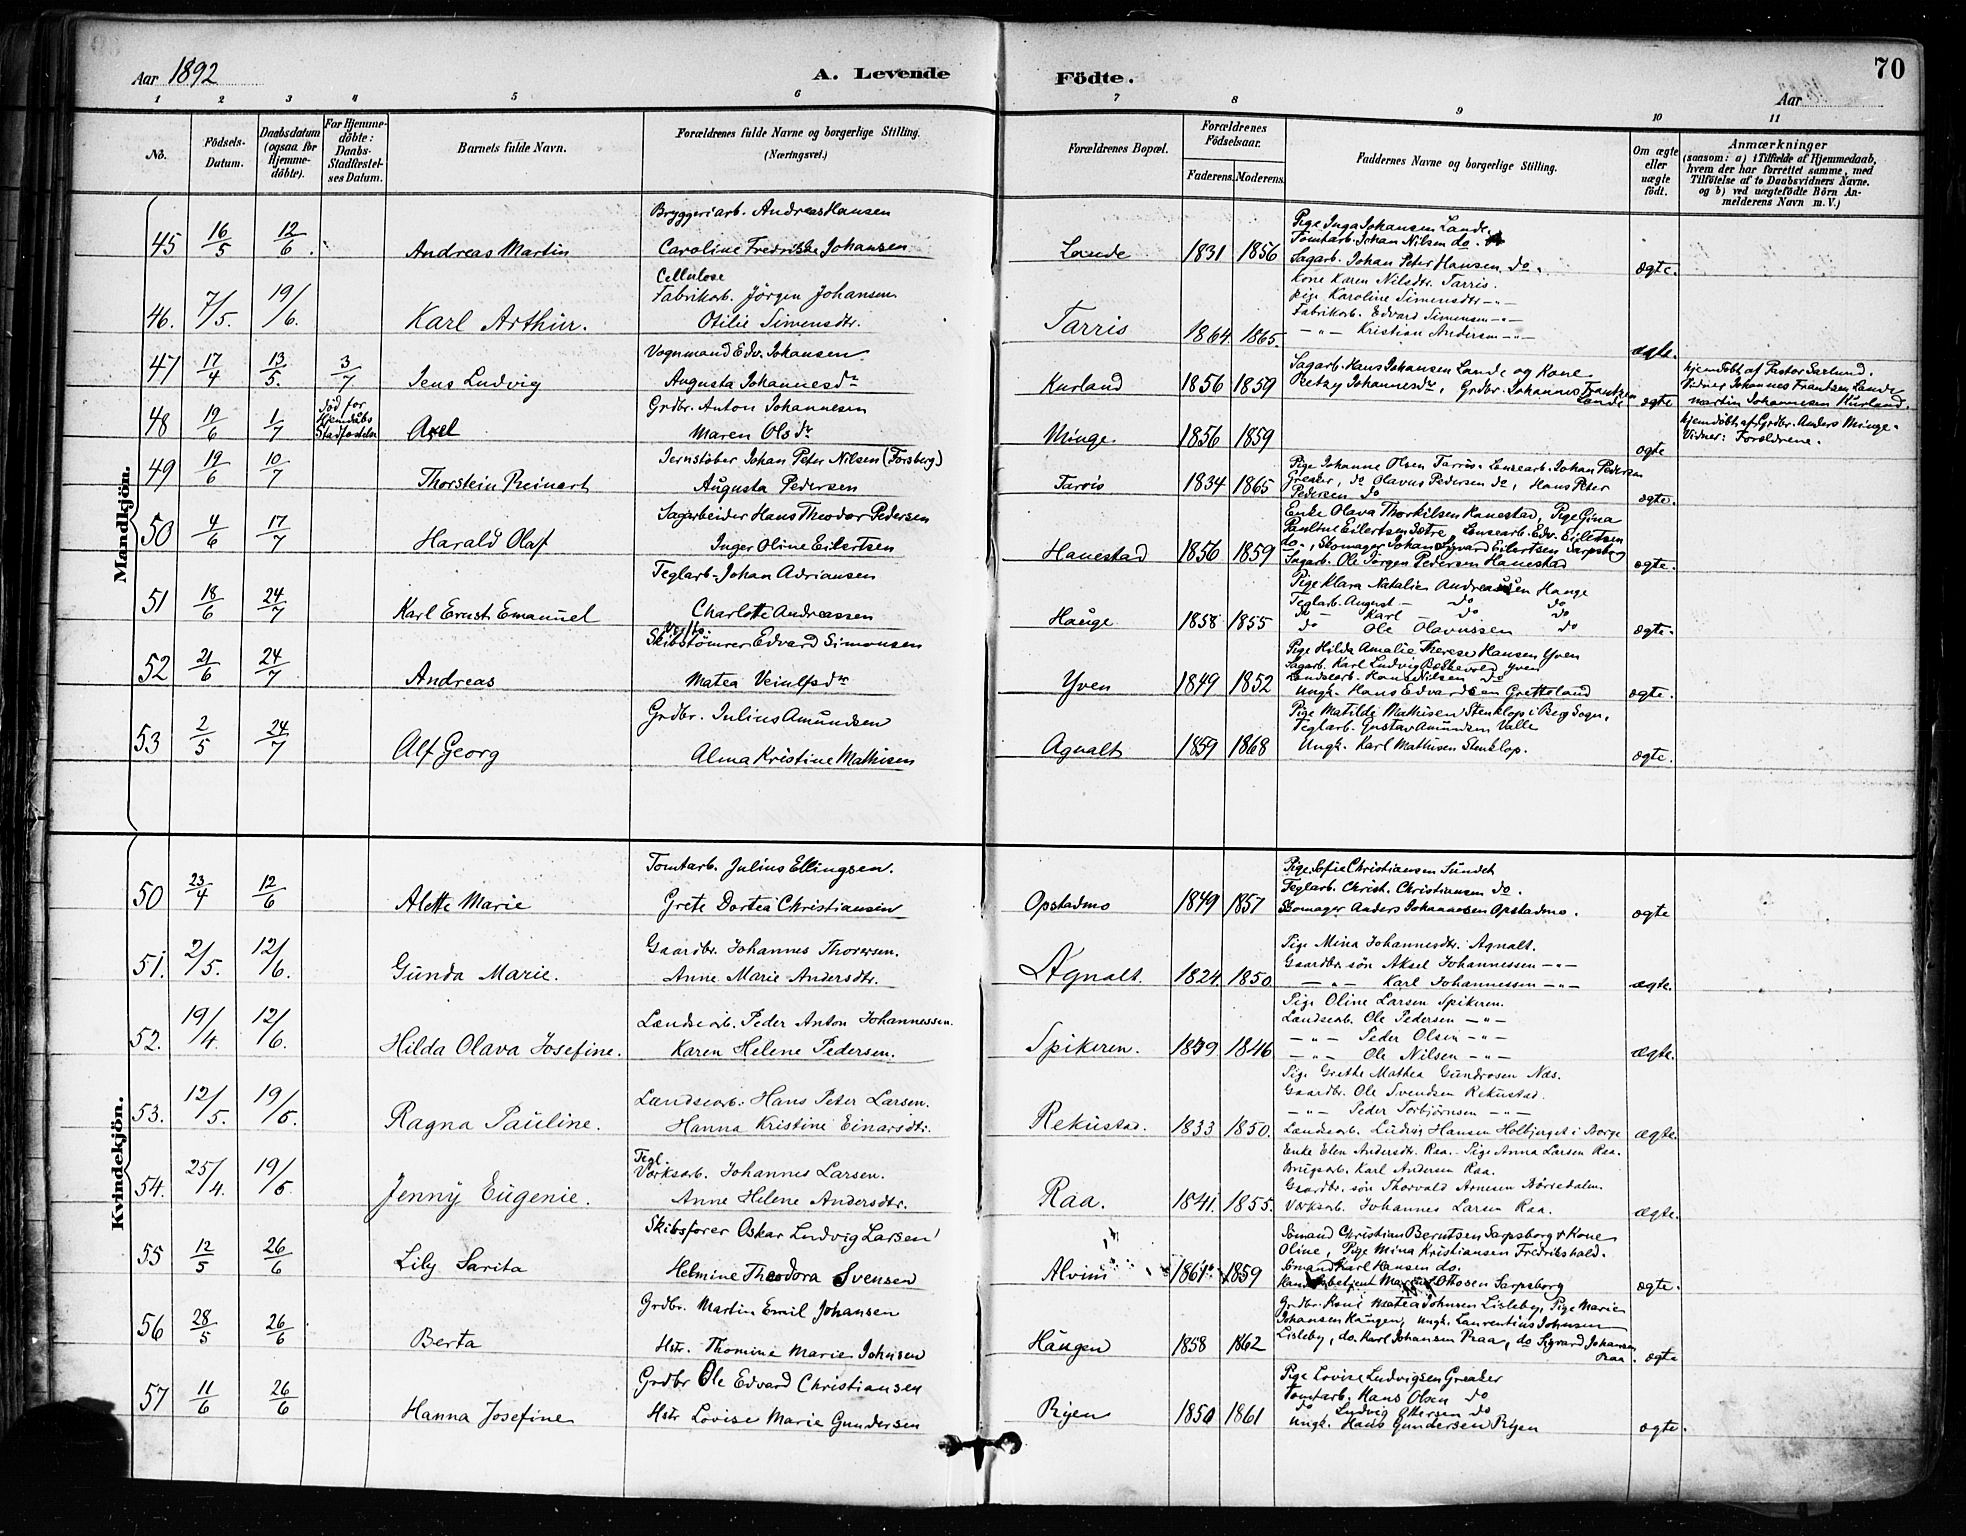 Aar 1892
A. Levende Födte.
70
Aar
1 2 3 4 5 6 7 8 9 10 11
No.
Födsels-Datum.
Daabsdatum (ogsaa for Hjemme-döbte).
For Hjemme-döbte: Daabs-Stadfæstel-ses Datum.
Barnets fulde Navn.
Forældrenes fulde Navne og borgerlige Stilling. (Næringsvei.)
Forældrenes Bopæl.
Forældrenes Födselsaar.
Faderens. Moderens.
Faddernes Navne og borgerlige Stilling.
Om ægte eller uægte födt.
Anmærkninger
(saasom: a) i Tilfælde af Hjemmedaab, hvem der har forrettet samme, med Tilföielse af to Daabsvidners Navne. og b) ved uægtefödte Börn An-melderens Navn m. V.)
Mandkjön.
45 16/5 12/6. Andreas Martin
Bryggeriarb. Andreas Hansen
Caroline Fredrikke Johansen
Lande 1831 1856
Pige Inga Johansen Lande,
Tomtarb. Johan Nilsen do.
Sagarb. Johan Peter Hansen do.
ægte.
46. 7/5. 19/6. Karl Arthur.
Cellulose
Fabrikarb. Jörgen Johansen
Otilie Simensdtr.
Tarris 1864 1865.
Kone Karen Nilsdtr. Tarris.
pige Karoline Simensdtr -"-
Fabrikarb. Edvard Simensen -"-
-"- Kristian Andersen -"-
ægte.
47 17/4 13/5. 3/7 Jens Ludvig
Vognmand Edv. Johansen
Augusta Johannesdr
Kurland 1856 1859
Sagarb. Hans Johansen Lande og Kone
Betzy Johannesdr, Grdbr. Johannes Frantzen Lande
ægte
hjemdöbt af Pastor Sørlund.
Vidner Johannes Frantsen Lande
Martin Johannesen Kurland.
48 19/6 1/7 Död for Hjemdaabs Stadfæstelse Axel
Grdbr. Anton Johannesen
Maren Olsdr
Minge. 1856 1859
ægte
hjemdöbt af Grdbr. Anders Minge.
Vidner: Forældrene.
49 19/6 10/7 Thorstein Reinert
Jernstöber Johan Peter Nilsen (Forsberg)
Augusta Pedersen
Tarris 1834 1865
Pige Johanne Olsen Tarris. Lensearb. Johan Pedersen
Greaker, do Olavus Pedersen do, Hans Peter
Pedersen do
ægte.
50 4/6 17/7 Harald Olaf
Sagarbeider Hans Theodor Pedersen
Inger Oline Eilertsen
Hanestad 1856 1859
Enke Olava Thorkilsen Hanestad, Pige Gina
Pauline Eilertsen Istre, Lensearb. Edv. Eilertsen
do., Skomager Johan Sigvard Eilertsen Sarpsborg
Sagarb. Ole Jörgen Pedersen Hanestad
ægte.
51 18/6 24/7 Karl Ernst Emanuel
Teglarb. Johan Adriansen
Charlotte Andreassen
Hauge 1858 1855
Pige Klara Natalie Andreassen Hauge
Teglarb. August - do do
do - Karl - do do
do Ole Olavussen do
ægte.
52 21/6 24/7 Andreas
Skibstömrer Edvard Simonsen
Matea Veiulfsdr
Yven 1849 1852
Pige Hilda Amalie Therese Hansen Yven
Sagarb. Karl Ludvig Bakkevold Yven
Landsarb. Hans Nilsen do
Ungk. Hans Edvardsen Gretteland
ægte.
53 2/5 24/7 Alf Georg
Grdbr. Julius Amundsen
Alma Kristine Mathisen
Agnalt 1859 1868
Pige Matilde Mathisen Stenklop i Berg Sogn.
Teglarb. Gustav Amundsen Valle
Ungk. Karl Mathisen Stenklop.
ægte.
Kvindekjön.
50 23/4 12/6 Alette Marie
Tomtarb. Julius Ellingsen.
Grete Dortea Christiansen
Opstadmo 1849 1857
Pige Sofie Christiansen Sundet
Teglarb. Christ. Christiansen do.
Skomager Anders Johannesen Opstadmo.
ægte
51. 2/5. 12/6. Gunda Marie.
Gaardbr. Johannes Thoresen.
Anne Marie Andersdtr.
Agnalt. 1824 1850.
Pige Mina Johannesdtr. Agnalt.
Gaardbr. søn Aksel Johannessen -"-
-"- Karl Johannessen -"-
ægte.
52. 19/4. 12/6. Hilda Olava Josefine.
Lændsearb. Peder Anton Johannessen.
Karen Helene Pedersen.
Spikeren. 1849 1846
Pige Oline Larsen Spikeren.
Lændsearb. Ole Pedersen -"-
-"- Peder Olsen -"-
-"- Ole Nilsen -"-
ægte.
53. 12/5. 19/6. Ragna Pauline.
Lændsearb. Hans Peter Larsen.
Hanna Kristine Einarsdtr.
Rekustad. 1833 1850.
Pige Grethe Mathea Gundrosen Næs.
Gaardbr. Ole Svendsen Rekustad.
-"- Peder Torbjörnsen -"-
Lændsearb. Ludvig Hansen Holbjerget i Borge
ægte.
54. 25/4. 19/6. Jenny Eugenie.
Tegl.
Værksarb. Johannes Larsen.
Anne Helene Andersdtr.
Raa. 1841. 1855.
Enke Elen Andersdtr. Raa. Pige Anna Larsen Raa.
Brugsarb. Karl Andersen Raa.
Gaardbr. søn Thorvald Arnesen Börredalen.
Værksarb. Johannes Larsen Raa.
ægte.
55 12/5 26/6 Lily Sarita
Skibsförer Oskar Ludvig Larsen
Helmine Theodora Svensen
Alvim 1861 1859
Sömand Christian Berntsen Sarpsborg & Kone
Oline, Pige Mina Kristiansen Fredrikshald.
Sömand Karl Hansen do.
Ottosen Sarpsborg
ægte.
56 28/5 26/6 Berta
Grdbr. Martin Emil Johansen
Hstr. Thomine Marie Johnsen
Haugen 1858 1862
Grdbr. Kone Matea Johnsen Lisleby, Pige Marie
Johansen Haugen, Ungk. Laurentius Johnsen
Lisleby, do. Karl Johansen Raa, do Sigvard Johansen
Raa.
ægte
57 11/6 26/6 Hanna Josefine
Grdbr Ole Edvard Christiansen
Hstr Lovise Marie Gundersen
Ryen 1850 1861
Pige Lovise Ludvigsen Greaker
Tomtarb. Hans Olsen do
do Ludvig Ottersen do
Ungk. Hans Gundersen Ryen
ægte.